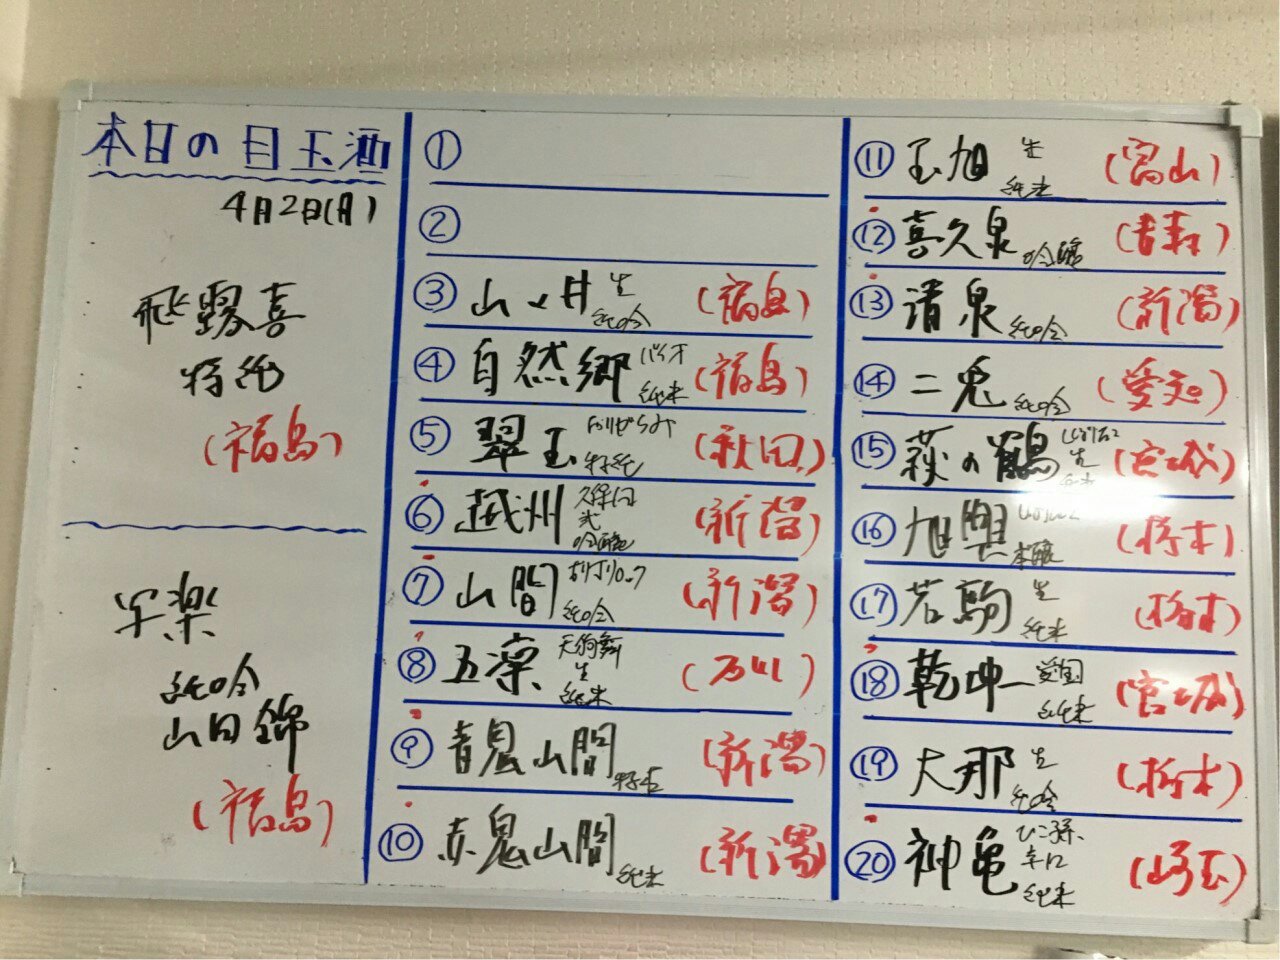 本日の目玉酒
4月2日(月)
飛露喜
特純
(福島)
写楽
純吟
山田錦
(福島)
①
②
③ 山ノ井 生 純吟 (福島)
④ 自然郷 バイオ 純米 (福島)
⑤ 翠玉 特純 (秋田)
⑥ 越州 久保田 弐 吟醸 (新潟)
⑦ 山間 純吟 (新潟)
⑧ 五凛 天狗舞 生 純米 (石川)
⑨ 青鬼山間 (新潟)
⑩ 赤鬼山間 純米 (新潟)
⑪ 玉旭 生 純米 (富山)
⑫ 喜久泉 吟醸 (青森)
⑬ 清泉 純吟 (新潟)
⑭ 二兎 純吟 (愛知)
⑮ 萩の鶴 生 純米 (宮城)
⑯ 旭興 本醸 (栃木)
⑰ 若駒 生 純米 (栃木)
⑱ 乾坤一 愛国 純米 (宮城)
⑲ 大那 生 純吟 (栃木)
⑳ 神亀 ひこ孫 辛口 純米 (埼玉)